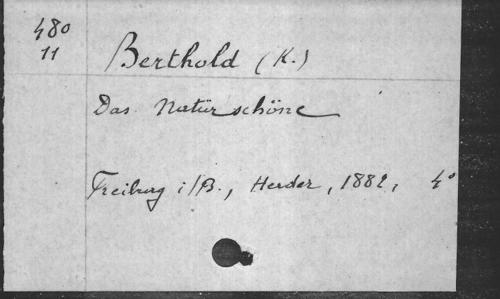 480
11
Berthold (K.)
Das Naturschöne
Freiburg i/B., Herder, 1882, 4°